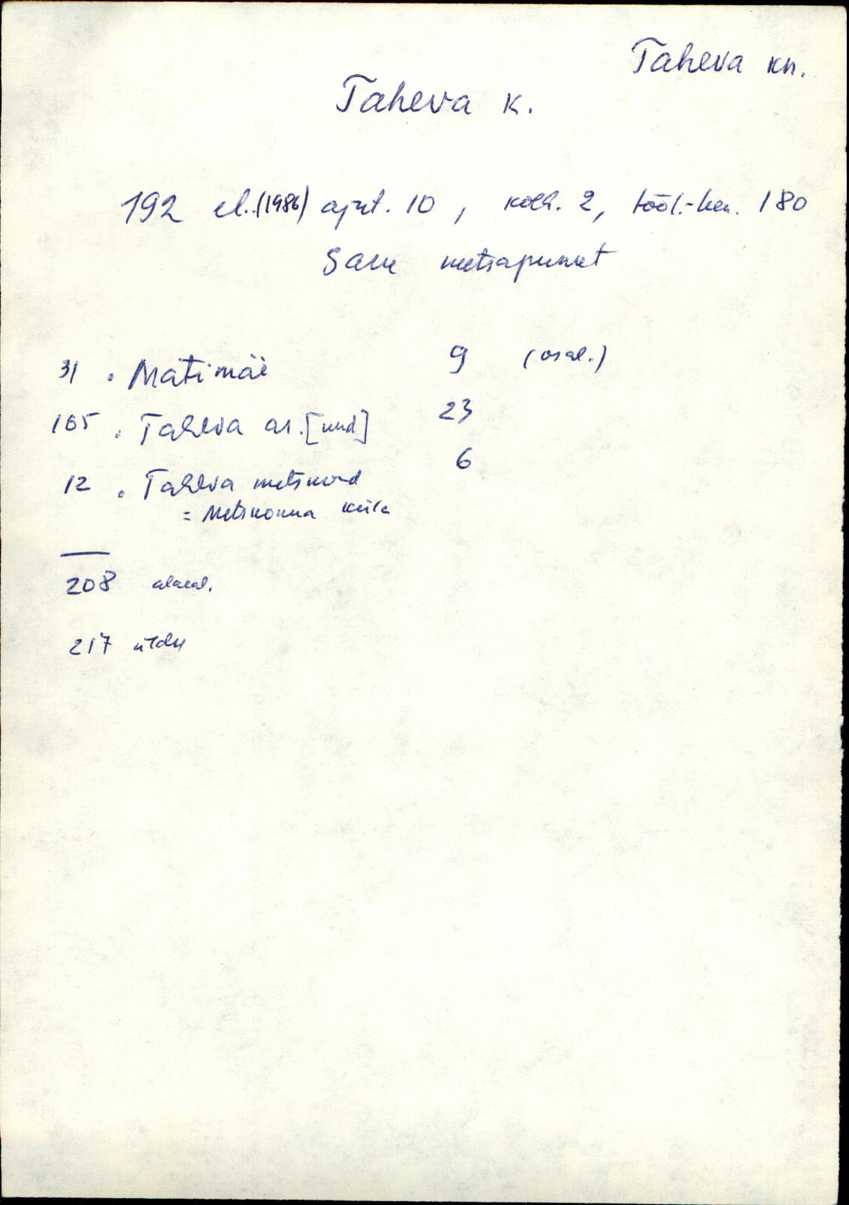 Taheva kn.
Taheva k.
192 el. (1986) ajut. 10, kolh. 2, tööl.-tee. 180
Saru metsapunkt
31 . Matimäe 9 (osal.)
165 . Taheva as. [und] 23
12 . Taheva metskond 6
= Metskonna küla
208 alaeal.
217 üldse